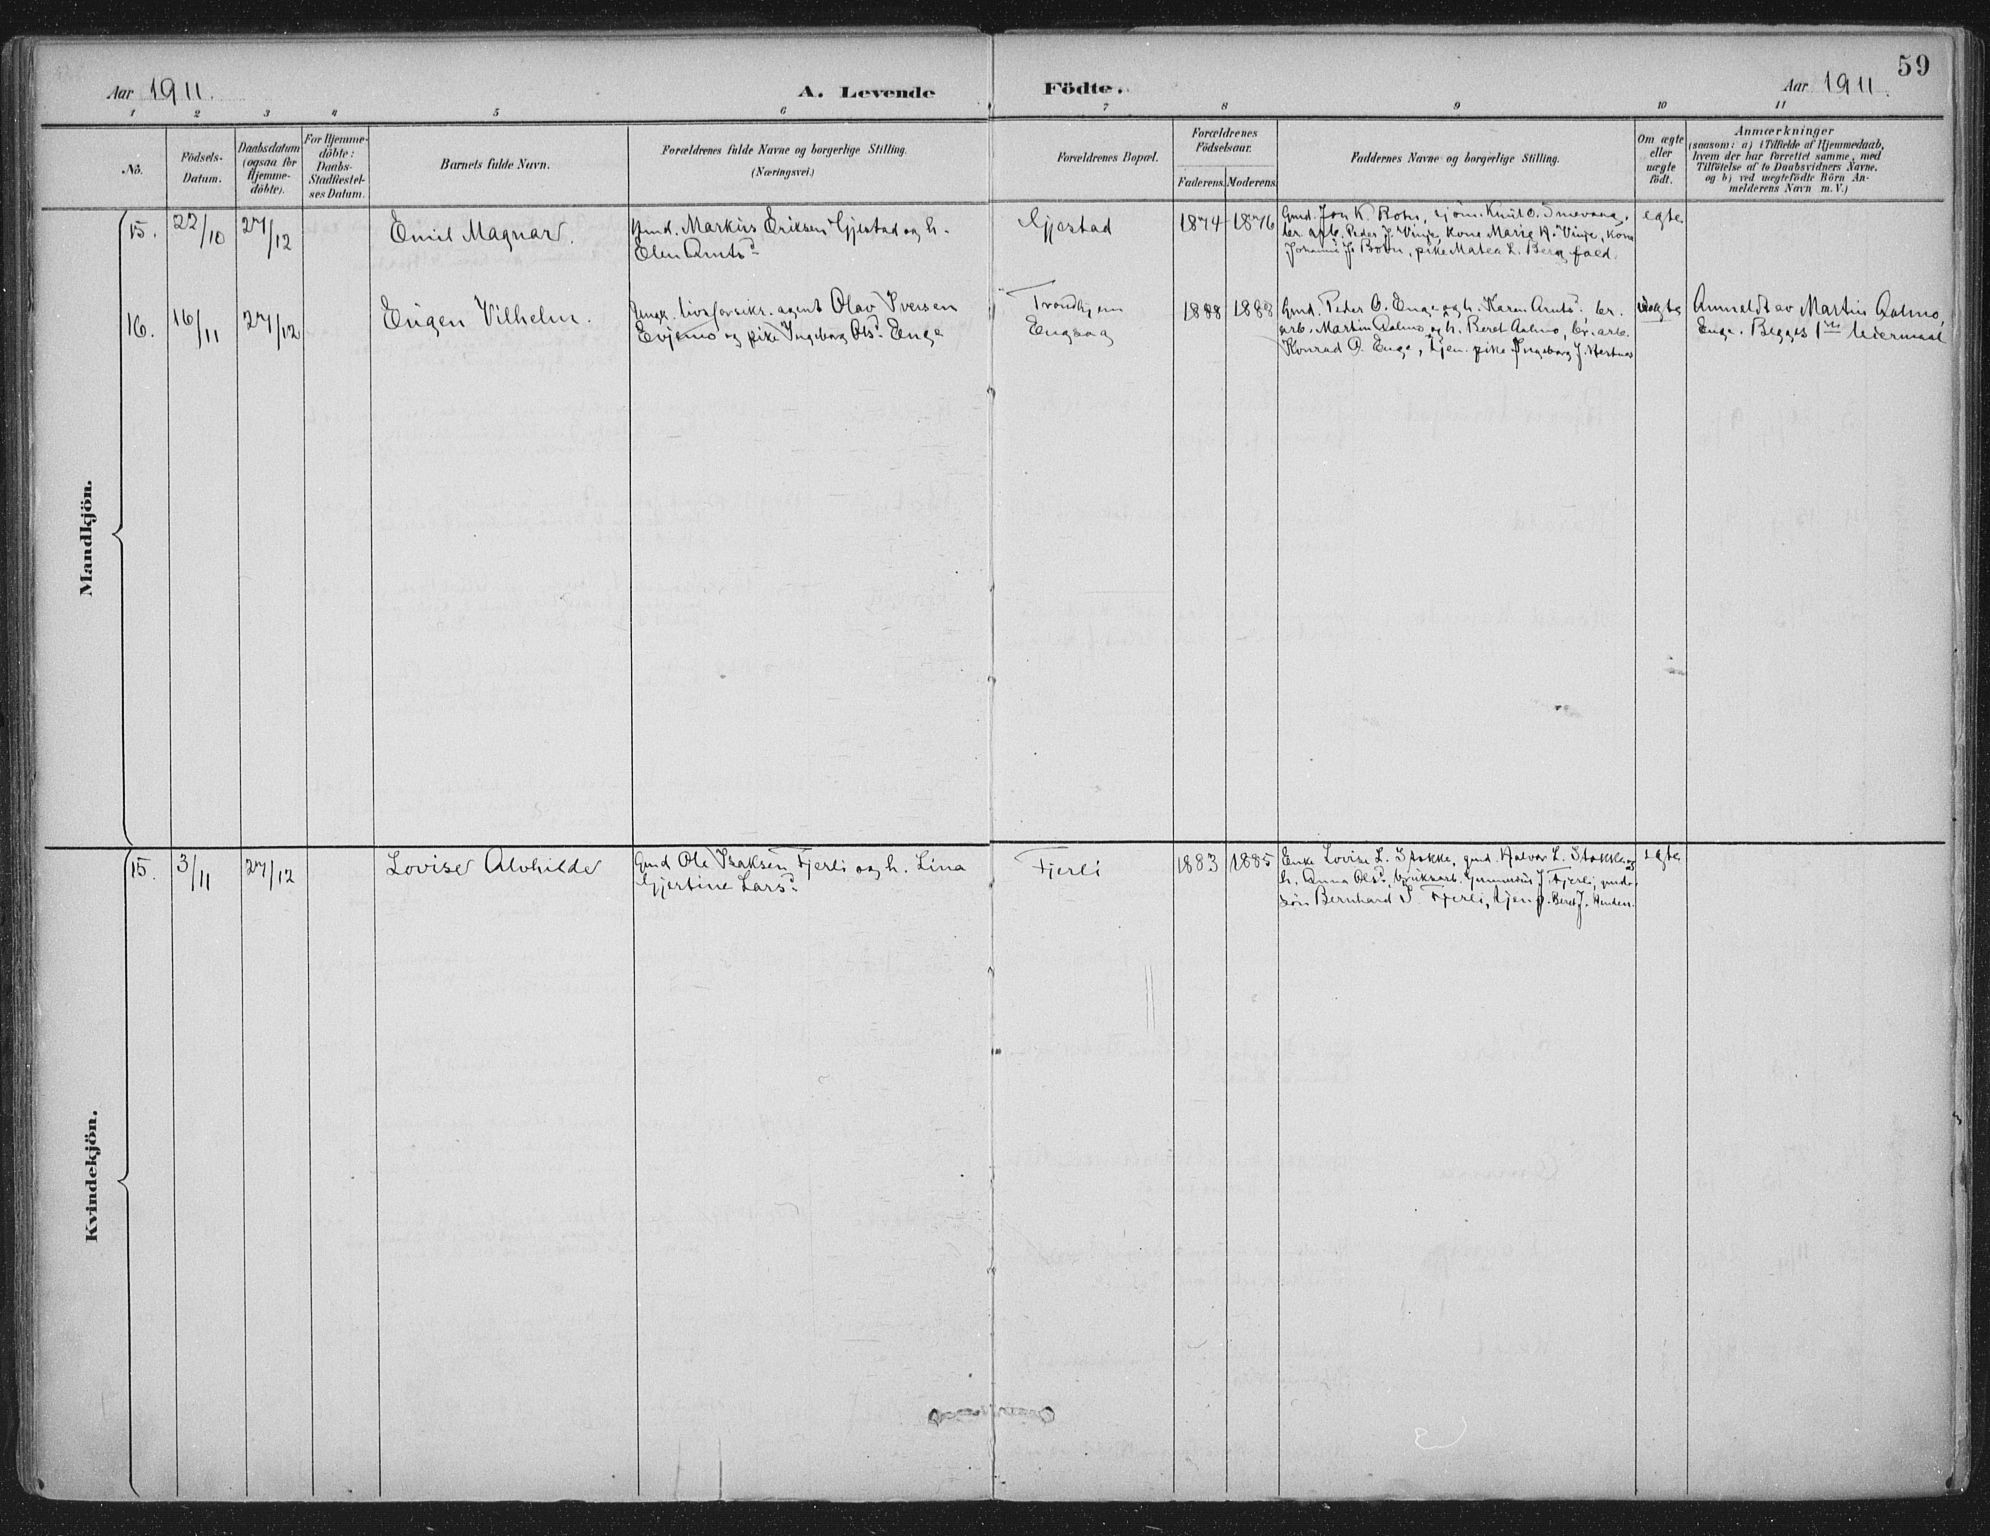 59
Aar 1911. A. Levende Födte. Aar 1911.
1 2 3 4 5 6 7 8 9 10 11
No.
Födsels-
Datum.
Daabsdatum
(ogsaa for
Hjemme-
döbte).
For Hjemme-
döbte:
Daabs-
Stadfæstel-
ses Datum.
Barnets fulde Navn.
Forældrenes fulde Navne og borgerlige Stilling.
(Næringsvei.)
Forældrenes Bopæl.
Forældrenes
Födselsaar.
Faderens. Moderens.
Faddernes Navne og borgerlige Stilling.
Om ægte
eller
uægte
födt.
Anmærkninger
(saasom: a) i Tilfælde af Hjemmedaab,
hvem der har forrettet samme, med
Tilföielse af to Daabsvidners Navne,
og b) ved uægtefödte Börn An-
melderens Navn m. V.)
Mandkjön.
15. 22/10 27/12
Emil Magnar.
Gmd. Markus Eriksen Gjestad og h.
Elen Arntsd.
Gjestad
1874 1876
Gmd. Jon K. Botn, sjöm. Knut O. Smevaag,
br. arb. Peder J. Vinje, kone Marie A. Vinje, kone
J. Botn, pike Matea L. Berg
egte
16. 16/11 27/12
Eugen Vilhelm.
Ungk. livsforsikr. agent Olav Iversen
Evjemo og pike Ingeborg Olsd. Enge
Trondhjem
Engsaag
1888 1888
Gmd. Peder O. Enge og h. Karen Arntsd., br.
arb. Martin Aalmo og h. Beret Aalmo, br. arb.
Konrad O. Enge, tjen. pike Ingeborg J.
uegte
Anmeldt av Martin Aalmo,
Enge. Begges 1ste leiermaal
Kvindekjön.
15. 3/11 27/12
Lovise Alvhilde
Gmd Ole Isaksen Fjerli og h. Lina
Gjertine Larsd.
Fjerli
1883 1885
Enke Lovise L. Stokke, gmd. Halvor L. Stokke og
h. Anna Olsd., bruksarb. J. Fjerli, gmd.
sön Bernhard I. Fjerli, tjen. p. Beret J.
egte